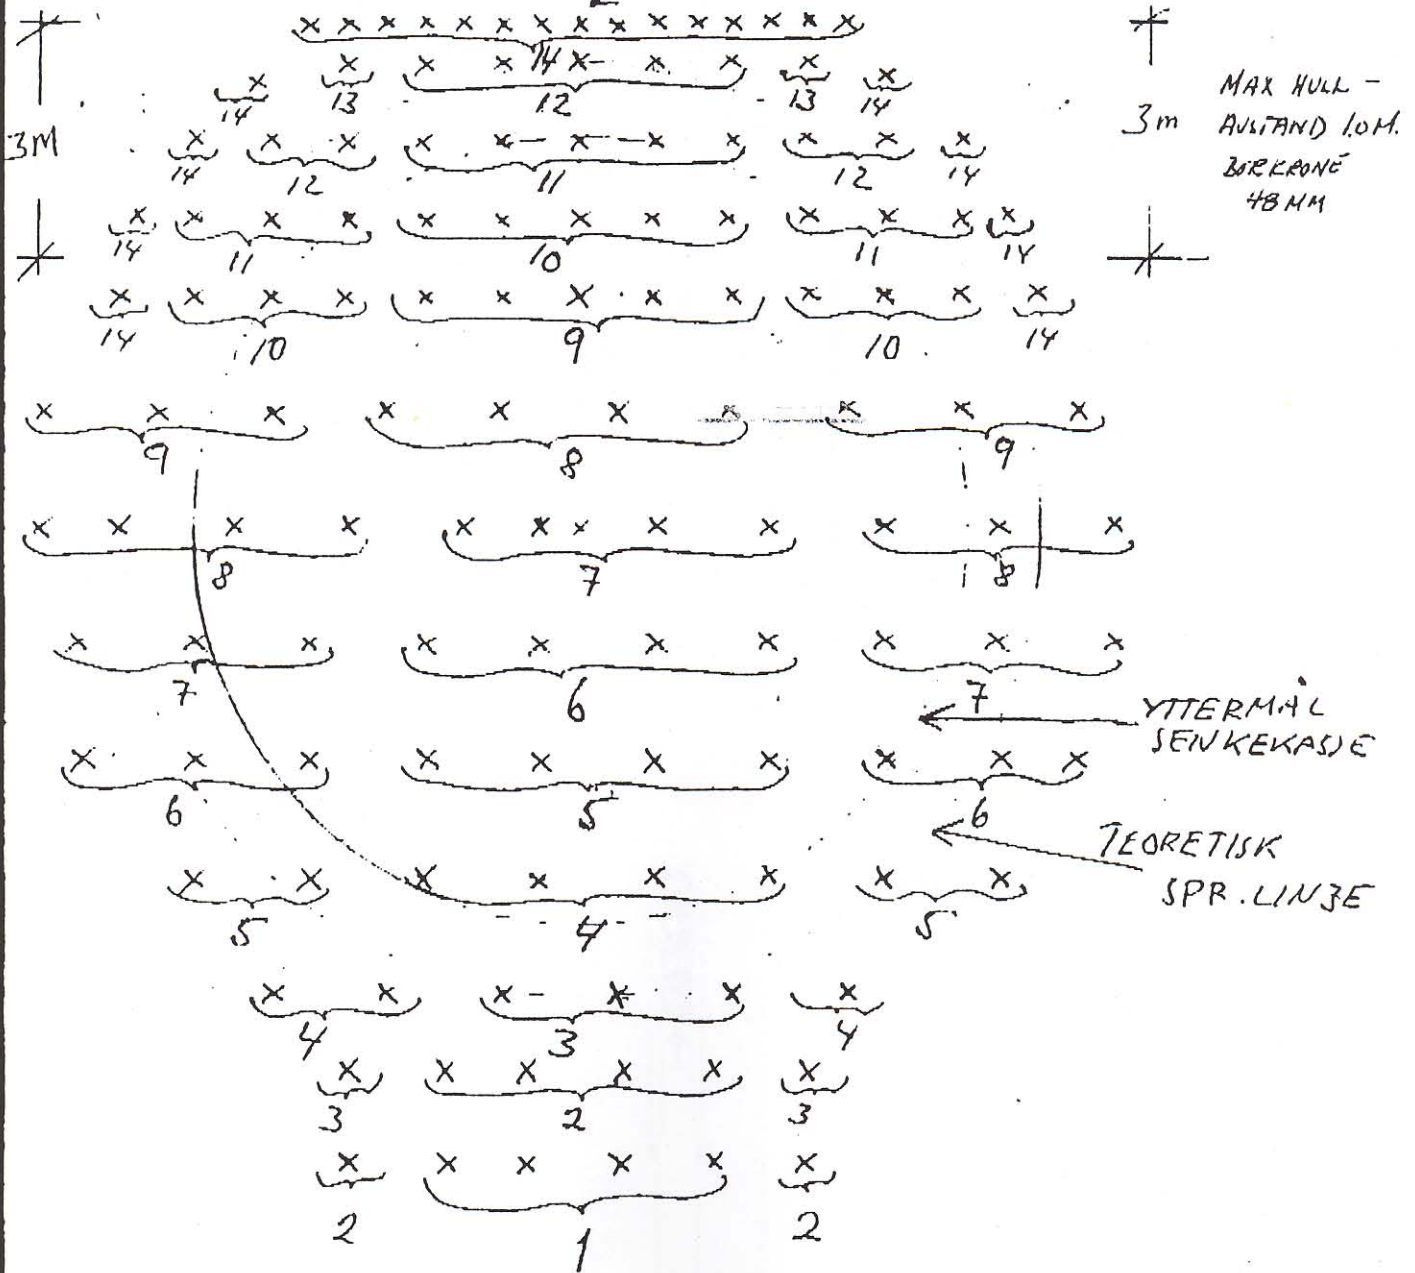 14
14 13 12 13 14
3M
3m
MAX HULL -
AVSTAND 1.0M.
BORKRONE
48 MM
14 12 11 12 14
14 11 10 11 14
14 10 9 10 14
9 8 9
8 7 8
7 6 7
YTTERMÅL
SENKEKASSE
6 5 6
TEORETISK
SPR. LINJE
5 4 5
4 3 4
3 2 3
2 1 2